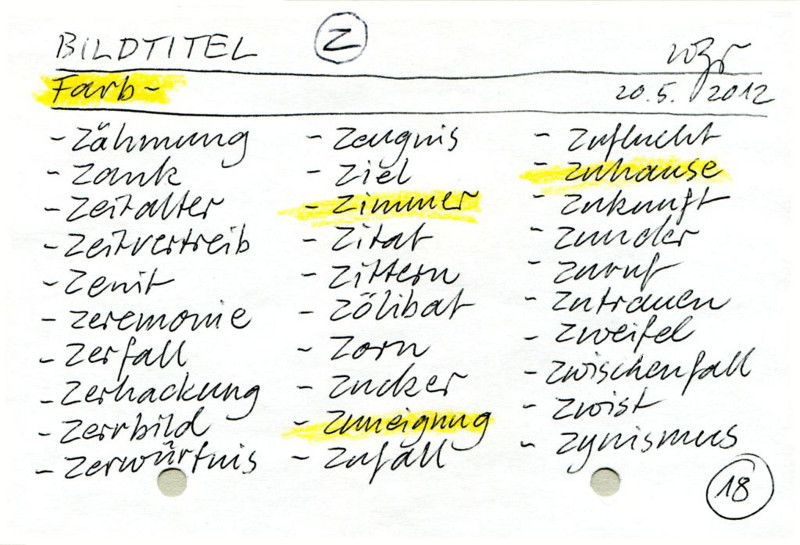 BILDTITEL Z
Farb- 20.5. 2012
- Zähmung
- Zank
- Zeitalter
- Zeitvertreib
- Zenit
- Zeremonie
- Zerfall
- Zerhackung
- Zerrbild
- Zerwürfnis
- Zeugnis
- Ziel
- Zimmer
- Zitat
- Zittern
- Zölibat
- Zorn
- Zucker
- Zuneigung
- Zufall
- Zuflucht
- Zuhause
- Zukunft
- Zunder
- Zuruf
- Zutrauen
- Zweifel
- Zwischenfall
- Zwist
- Zynismus
18